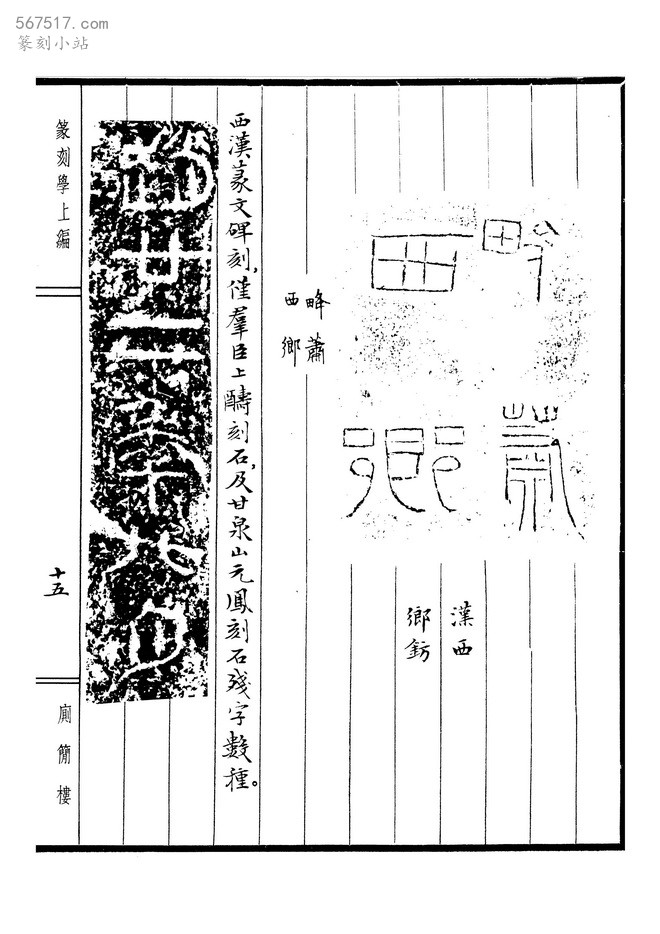 567517.com
篆刻小站
漢西
鄉鈁
畤蕭
西鄉
西漢篆文碑刻，僅羣臣上醻刻石，及甘泉山元鳳刻石殘字數種。
篆刻學上編
十五
廁簡樓